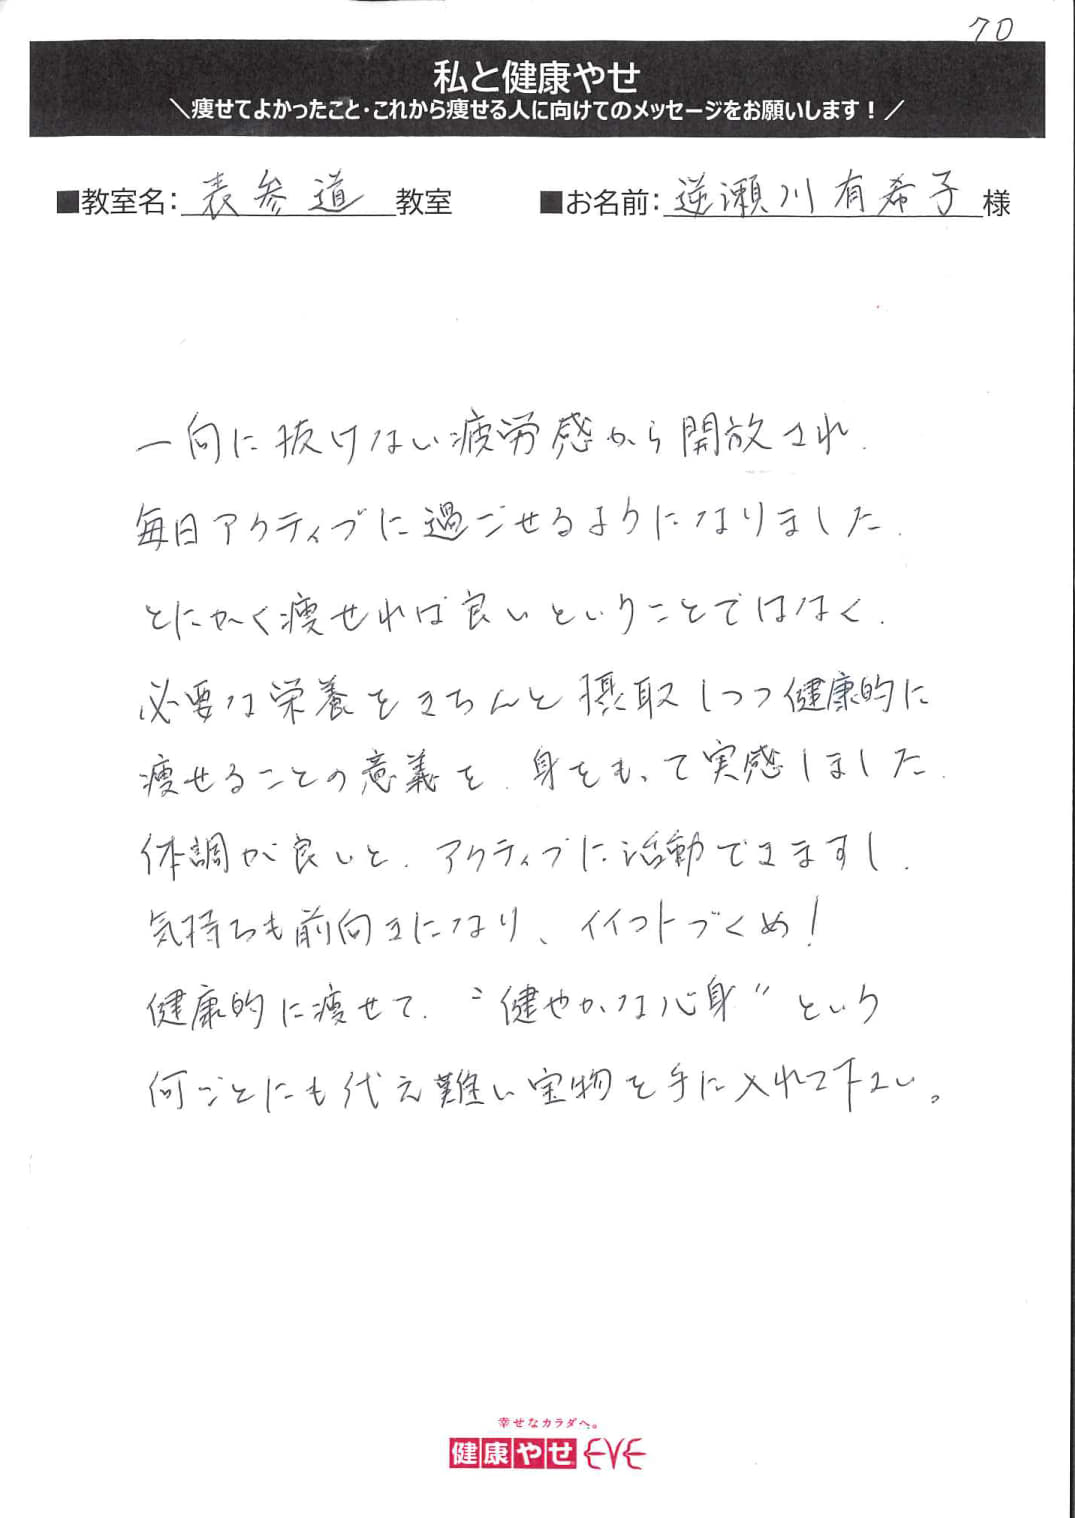 70
私と健康やせ
＼痩せてよかったこと・これから痩せる人に向けてのメッセージをお願いします！／
■教室名：表参道教室 ■お名前：逆瀬川有希子様
一向に抜けない疲労感から開放され、
毎日アクティブに過ごせるようになりました。
とにかく痩せれば良いということではなく、
必要な栄養をきちんと摂取しつつ健康的に
痩せることの意義を、身をもって実感しました。
体調が良いと、アクティブに活動できますし、
気持ちも前向きになり、イイコトづくめ！
健康的に痩せて、“健やかな心身”という
何ごとにも代え難い宝物を手に入れて下さい。
幸せなカラダへ。
健康やせEVE